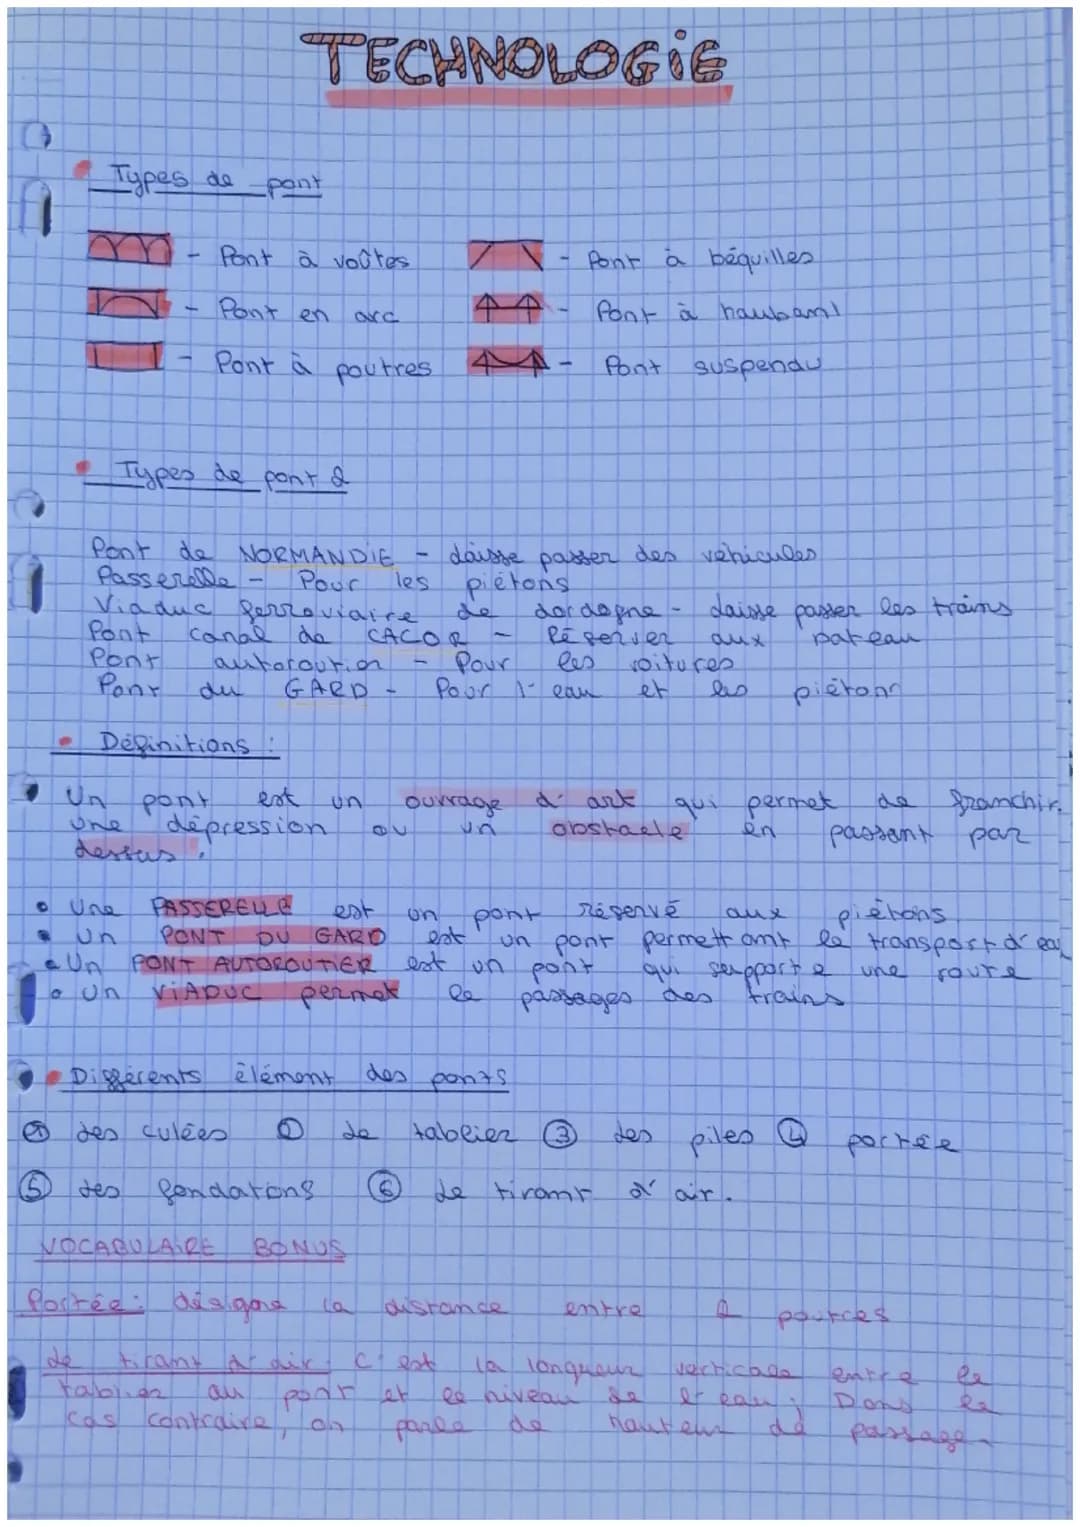 TECHNOLOGiE
Types de pont
- Pont à voûtes
- Pont à béquilles
- Pont en arc
- Pont à haubant
- Pont à poutres
- Pont suspendu
Types de pont 2
Pont de NORMANDIE - Laisse passer des véhicules
Passerelle - Pour les piétons
Viaduc ferroviaire de dordogne - Laisse passer les trains
Pont canal de CACOR - Réserver aux bateau
Pont autoroutier - Pour les voitures
Pont du GARD - Pour l'eau et les piétons
Définitions :
Un pont est un ouvrage d'art qui permet de franchir
une dépression ou un obstacle en passant par
dessus.
Une PASSERELLE est un pont réservé aux piétons
Un PONT DU GARD est un pont permettant le transport d'eau
Un PONT AUTOROUTIER est un pont qui supporte une route
Un ViADUC permet le passages des trains
Différents élément des ponts
des culées ① Le tablier ③ des piles ④ portée
⑤ des fondations ⑥ Le tirant d'air.
VOCABULAiRE BONUS
Portée : désigne la distance entre 2 poutres
Le tirant d'air : C'est la longueur verticale entre le
tablier du pont et le niveau de l'eau ; Dans le
cas contraire, on parle de hauteur de passage.